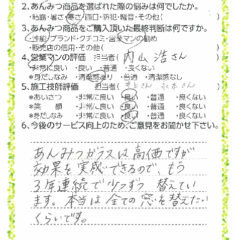 2.あんみつ商品を選ばれた際の悩みは何でしたか。
・結露・暑さ・寒さ・西日・防犯・騒音・その他(
3.あんみつ商品をご購入頂いた最終判断は何ですか。
・性能・ブランド・クチコミ・営業マンの勧め
・販売店の信用・その他(
4.営業マンの評価 担当者( 内山 浩さん
・非常に良い ・良い ・普通 ・良くない
※身だしなみ ・清潔感有り ・普通 ・清潔感なし
5.施工技師評価 担当者(
※あいさつ ・非常に良い ・良い ・普通 ・良くない
※笑 顔 ・非常に良い ・良い ・普通 ・良くない
※身だしなみ ・非常に良い ・良い ・普通 ・良くない
6.今後のサービス向上のため、ご意見をお聞かせ下さい。
あんみつガラスは高価ですが
効果を実感できるので、もう
3年連続で少しずつ替えてい
ます。本当は全ての窓を替えたい
くらいです。